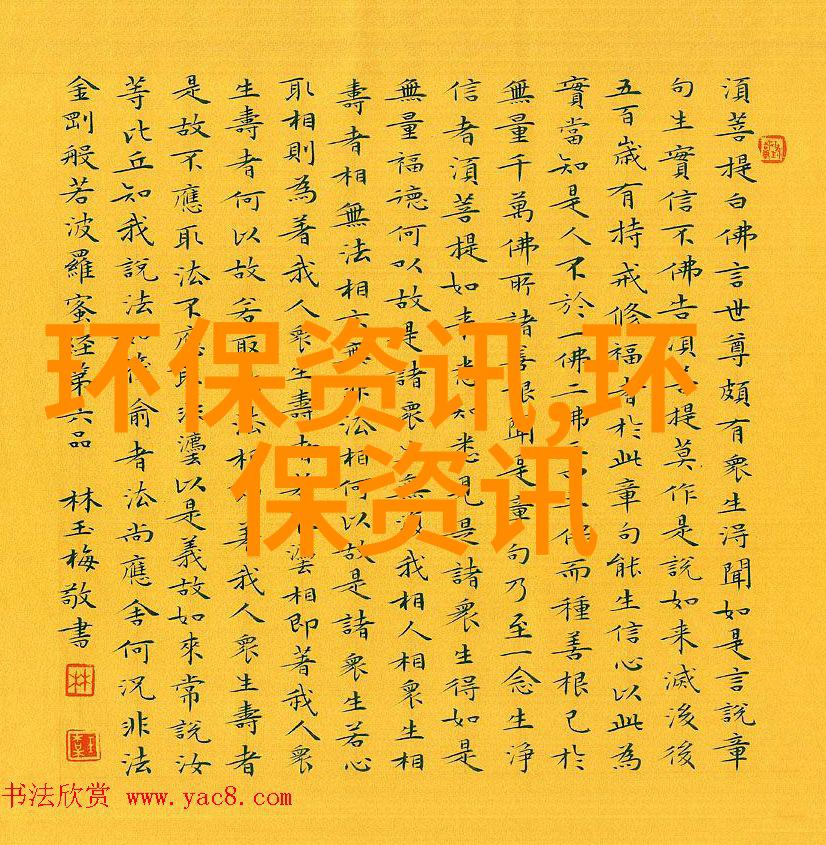 須菩提白佛言世尊頗有衆生得聞如是言說章
句生實信不佛告須菩提莫作是說如来滅後後
五百歲有持戒修福者於此章句能生信心以此為
實當知是人不於一佛二佛而種善根已於
無量千萬佛所諸善根聞是章句乃至一念生淨
信者須菩提如来悉知悉見是諸衆生得如是
無量福德何以故是諸衆生無復我相人相衆生相
壽者相無法相亦無非法相何以故是諸衆生若心
取相則為著我人衆生壽者若法相即著我人衆
生壽者何以故若取法相著我人衆生壽者
是故不應取法不應取非法以是義故如來常說汝
等比丘知我說法如筏喻者法尚應舍何況非法
金剛般若波羅蜜経第六品 林玉梅敬書
林
环保资讯,环
保资讯
书法欣赏 www.yac8.com